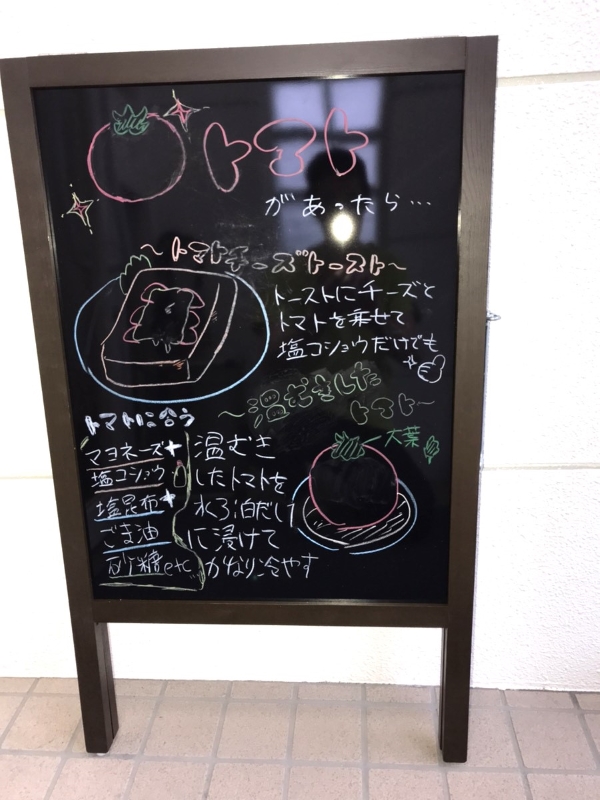 トマト
があったら…
～トマトチーズトースト～
トーストにチーズと
トマトを乗せて
塩コショウだけでも
～温むきした
トマト～
大葉
トマトに合う
マヨネーズ+
塩コショウ
塩昆布+
ごま油
砂糖etc
温むき
したトマトを
水で3泊だし
に浸けて
かなり冷やす